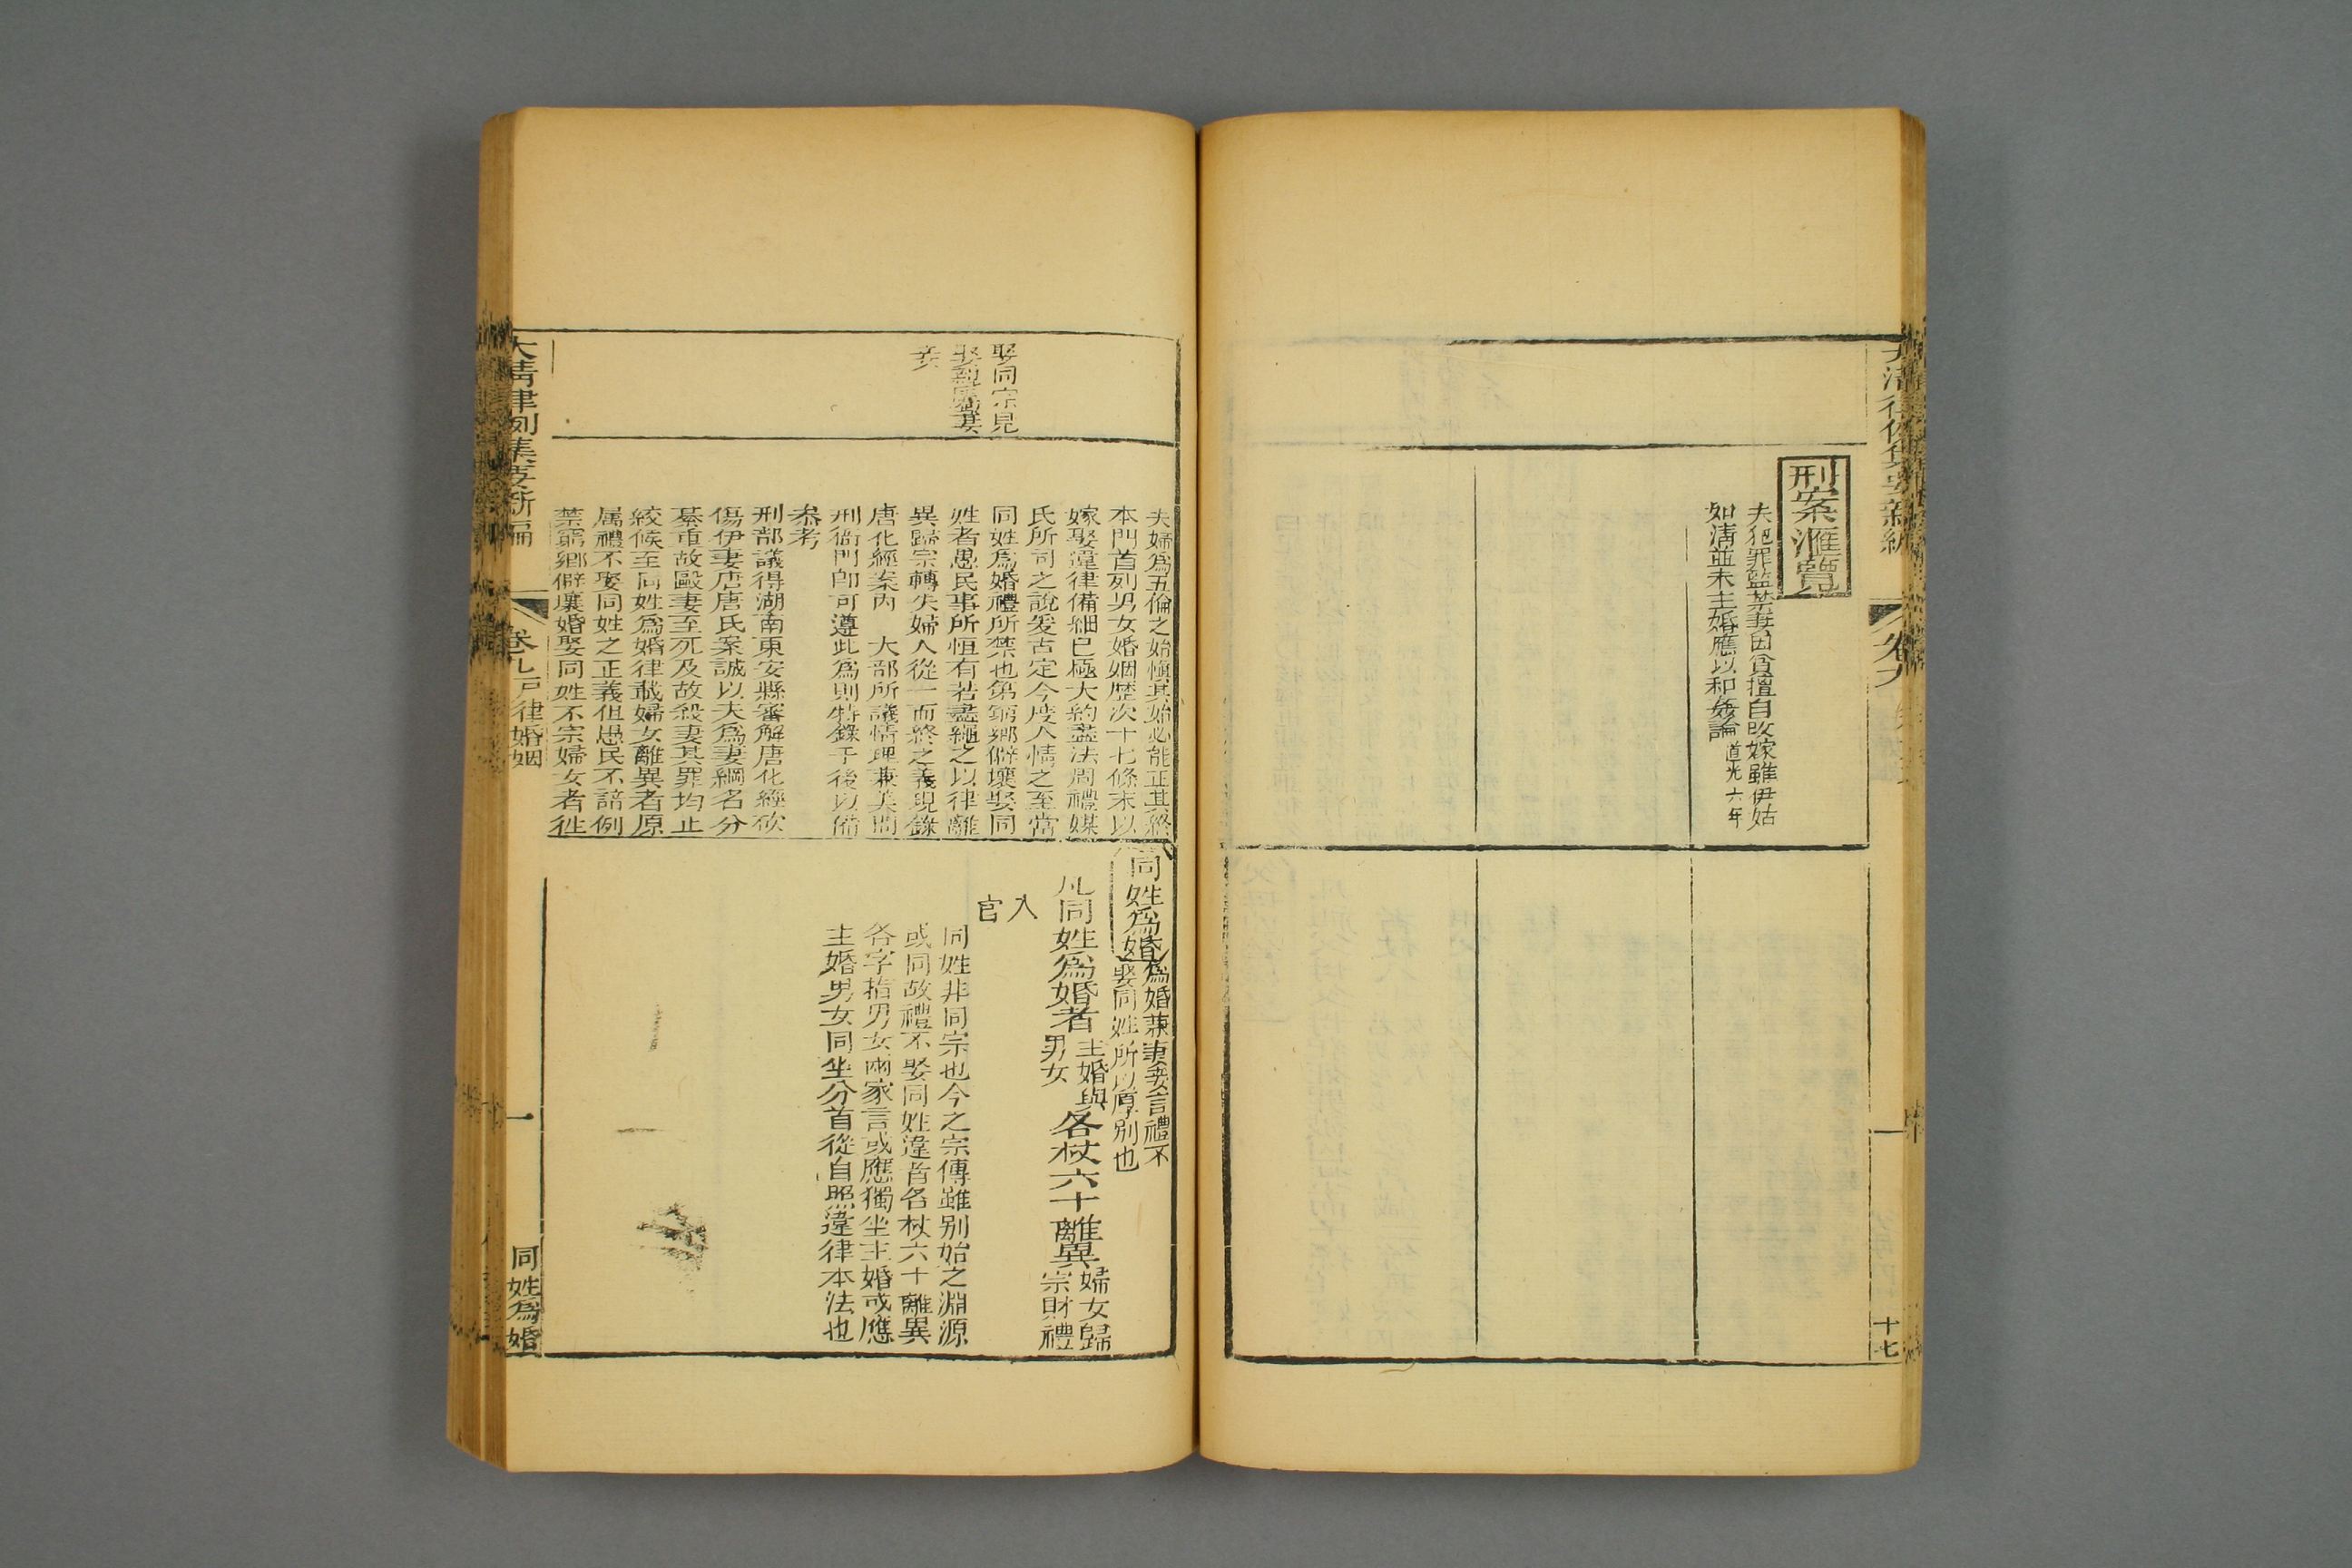 刑案滙覽
夫犯罪監禁妻因貧擅自改嫁雖伊姑
知情並未主婚應以和姦論道光六年
十七
娶同宗見
娶親屬妻
妾
夫婦爲五倫之始愼其始必能正其終
本門首列男女婚姻歷次十七條末以
嫁娶違律備細已極大約盡法周禮媒
氏所司之說爰古定今度人情之至當
同姓爲婚禮所禁也第窮鄉僻壤娶同
姓者愚民事所恒有若盡繩之以律離
異歸宗轉失婦人從一而終之義現錄
唐化經案內　大部所議情理兼美問
刑衙門卽可遵此爲則特錄于後以備
叅考
刑部議得湖南東安縣審解唐化經砍
傷伊妻唐唐氏案誠以夫爲妻綱名分
綦重故毆妻至死及故殺妻其罪均止
絞候至同姓爲婚律載婦女離異者原
属禮不娶同姓之正義但愚民不諳例
禁窮鄉僻壤婚娶同姓不宗婦女者徃
同姓爲婚
爲婚兼妻妾言禮不
娶同姓所以厚別也
凡同姓爲婚者主婚與男女各杖六十離異婦女歸宗財禮
入官
同姓非同宗也今之宗傳雖別始之淵源
或同故禮不娶同姓違者各杖六十離異
各字指男女兩家言或應獨坐主婚或應
主婚男女同坐分首從自照違律本法也
大清律例集要新編
卷七戶律婚姻
一
同姓爲婚